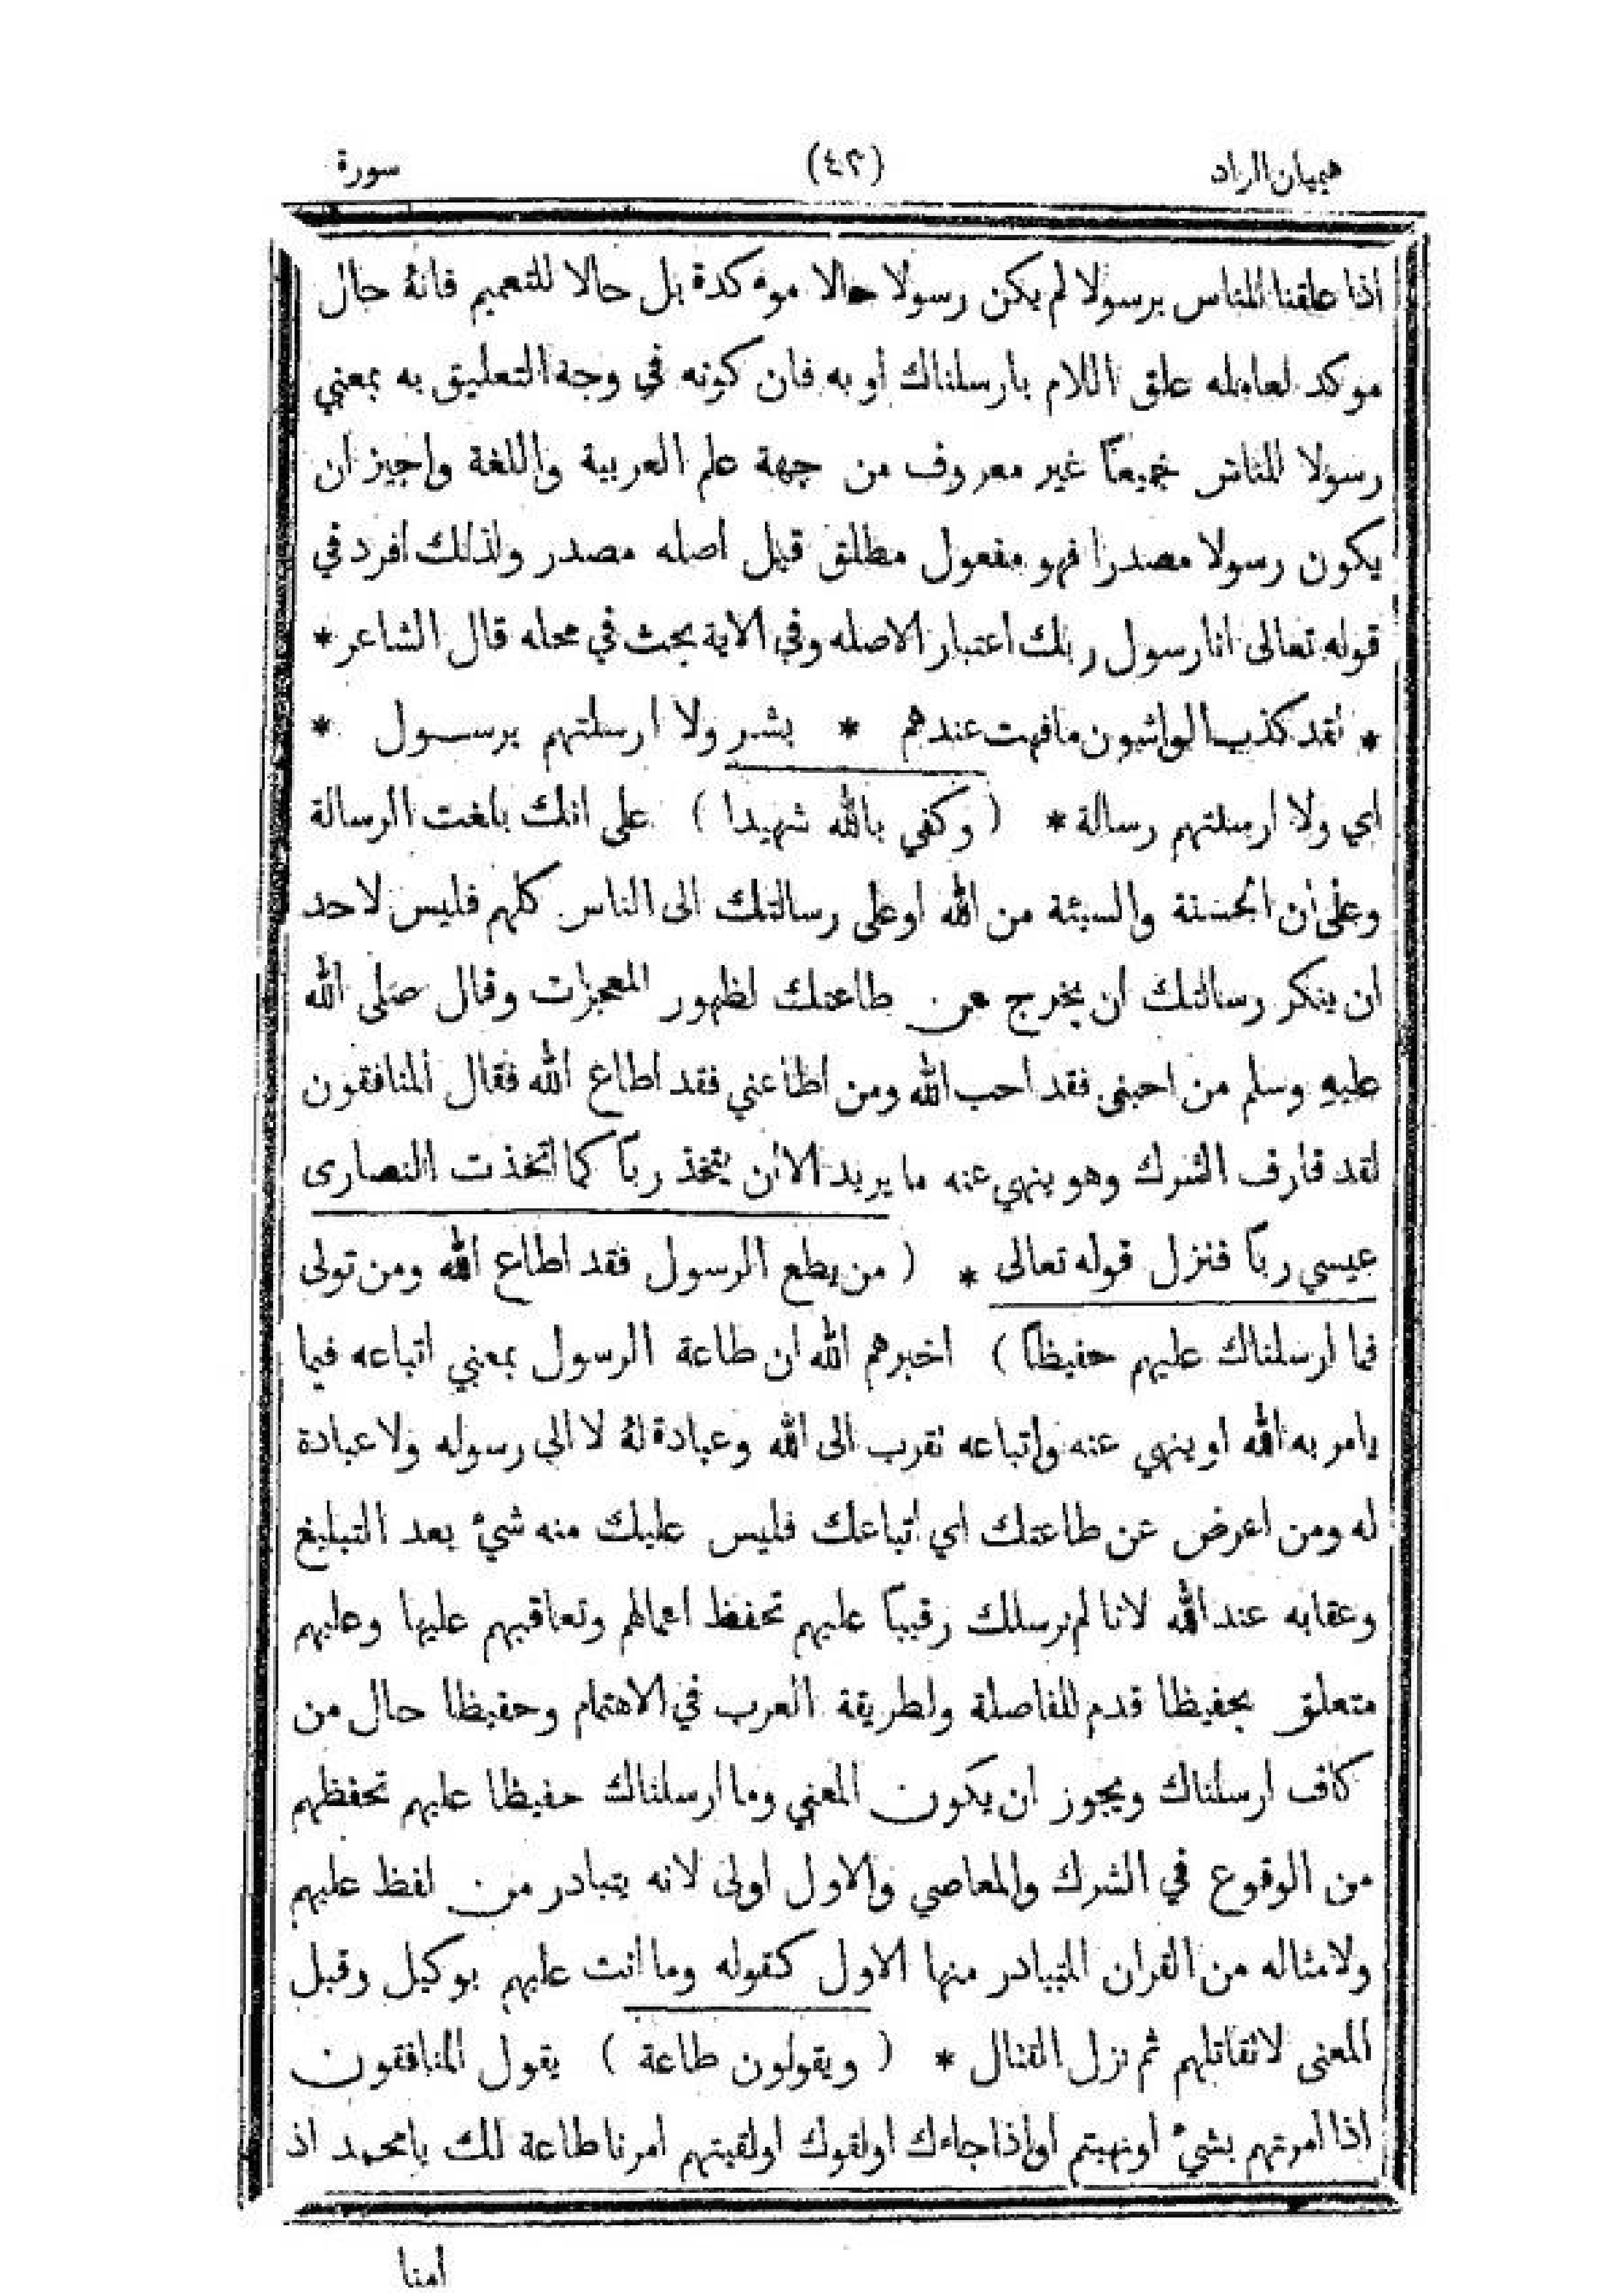 هيميان الزاد (٤٢) سورة
اذا علقنا للناس برسولا لم يكن رسولا حالا موءكدة بل حالا للتعميم فانهٔ حال
موكد لعامله علق اللام بارسلناك أو به فان كونه في وجه التعليق به بمعني
رسولا للناس جميعاً غير معروف من جهة علم العربية واللغة واجيز ان
يكون رسولا مصدرا فهو مفعول مطلق قيل اصله مصدر ولذلك افرد في
قوله تعالى انا رسول ربك اعتبار الاصله وفي الاية بحث في محله قال الشاعر *
* لقد كذب الواشون ما فهت عندهم * بشر ولا ارسلتهم برسول *
اي ولا ارسلتهم رسالة * ( وكفي بالله شهيدا ) على انك بلغت الرسالة
وعلى ان الحسنة والسيئة من الله او على رسالتك الى الناس كلهم فليس لاحد
ان ينكر رسالتك ان يخرج عن طاعتك لظهور المعجزات وقال صلى الله
عليهِ وسلم من احبنى فقد احب الله ومن اطاعني فقد اطاع الله فقال المنافقون
لقد قارف الشرك وهو ينهي عنه ما يريد الا أن يتخذ رباً كما اتخذت النصارى
عيسي رباً فنزل قوله تعالى * ( من يطع الرسول فقد اطاع الله ومن تولى
فما ارسلناك عليهم حفيظاً ) اخبرهم الله ان طاعة الرسول بمعني اتباعه فيما
يامر به الله او ينهي عنه واتباعه تقرب الى الله وعبادة لهٔ لا الي رسوله ولا عبادة
له ومن اعرض عن طاعتك اي اتباعك فليس عليك منه شيء بعد التبليغ
وعقابه عند الله لانا لم نرسلك رقيباً عليهم تحفظ اعمالهم وتعاقبهم عليها وعليهم
متعلق بحفيظا قدم للفاصلة ولطريقة العرب في الاهتمام وحفيظا حال من
كاف ارسلناك ويجوز ان يكون المعني وما ارسلناك حفيظا عليهم تحفظهم
من الوقوع في الشرك والمعاصي والاول اولى لانه يتبادر من لفظ عليهم
ولامثاله من القران المتبادر منها الاول كقوله وما انت عليهم بوكيل وقيل
المعنى لا تقاتلهم ثم نزل القتال * ( ويقولون طاعة ) يقول المنافقون
اذا امرتهم بشيء او نهيتم او اذا جاءك او لقوك او لقيتهم امرنا طاعة لك يا محمد اذ
امنا